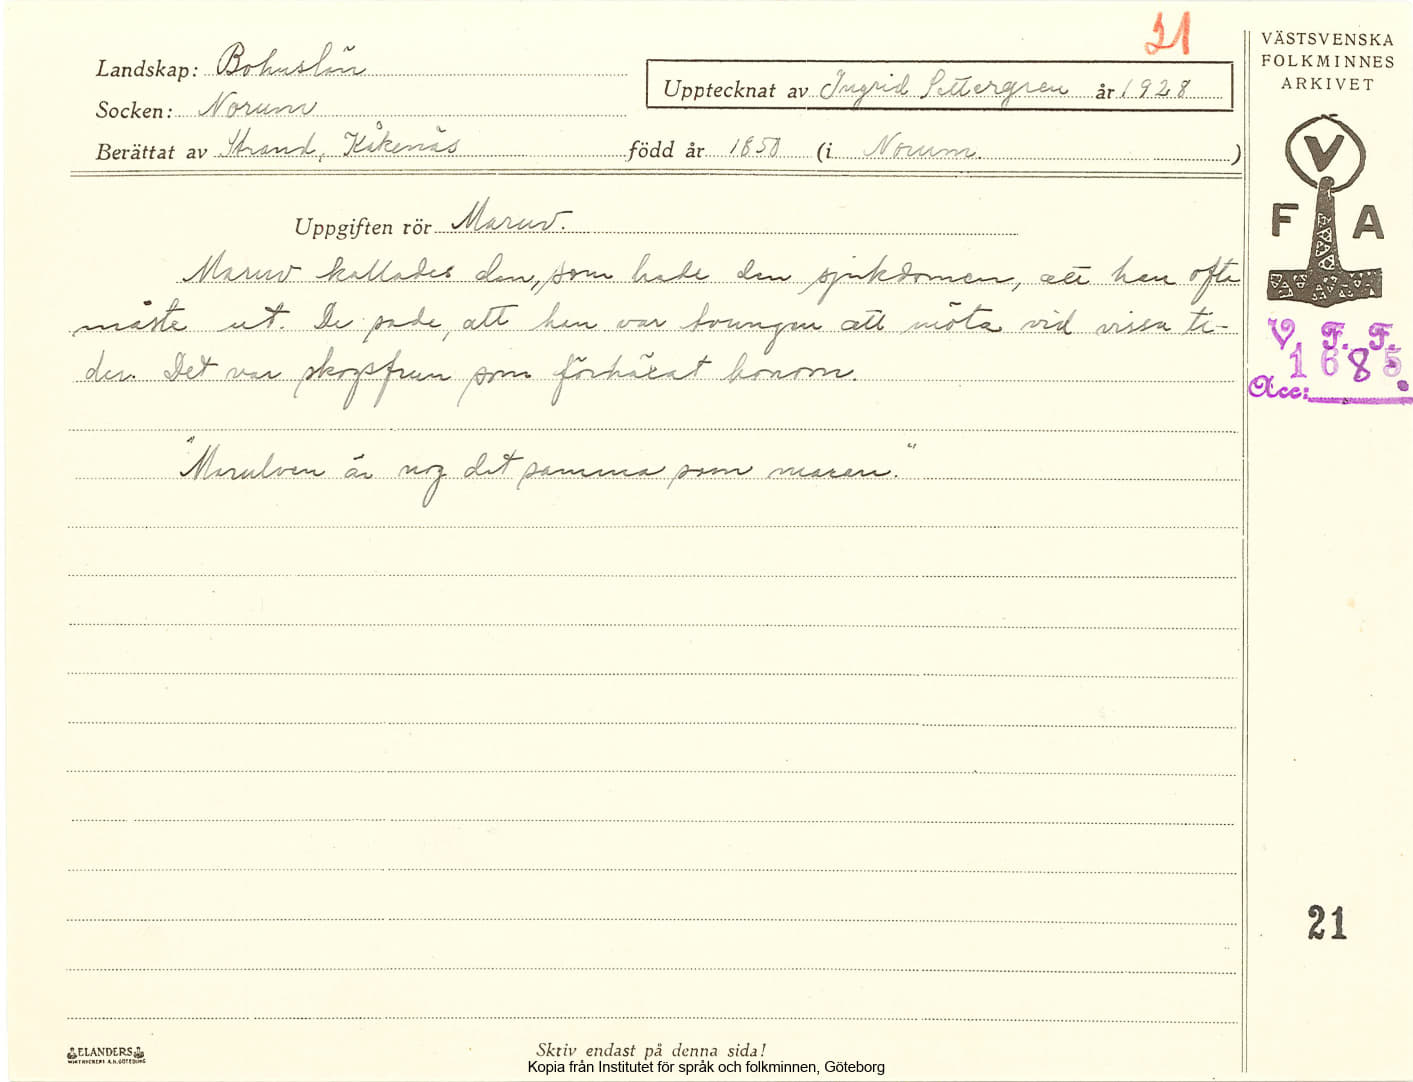 21
VÄSTSVENSKA
FOLKMINNES
ARKIVET
Landskap: Bohuslän
Upptecknat av Ingrid Settergren år 1928
Socken: Norum
Berättat av Strand, Kåkenäs född år 1850 (i Norum.)
V
F A
Uppgiften rör Maruv.
Maruv kallades den, som hade den sjukdomen, att han ofta
måste ut. De sade, att han var tvungen att möta vid vissa ti-
der. Det var skogsfrun som förhäxat honom.
V. F. F.
1685
Acc:
"Marulven är nog det samma som maran."
21
ELANDERS
Skriv endast på denna sida!
Kopia från Institutet för språk och folkminnen, Göteborg